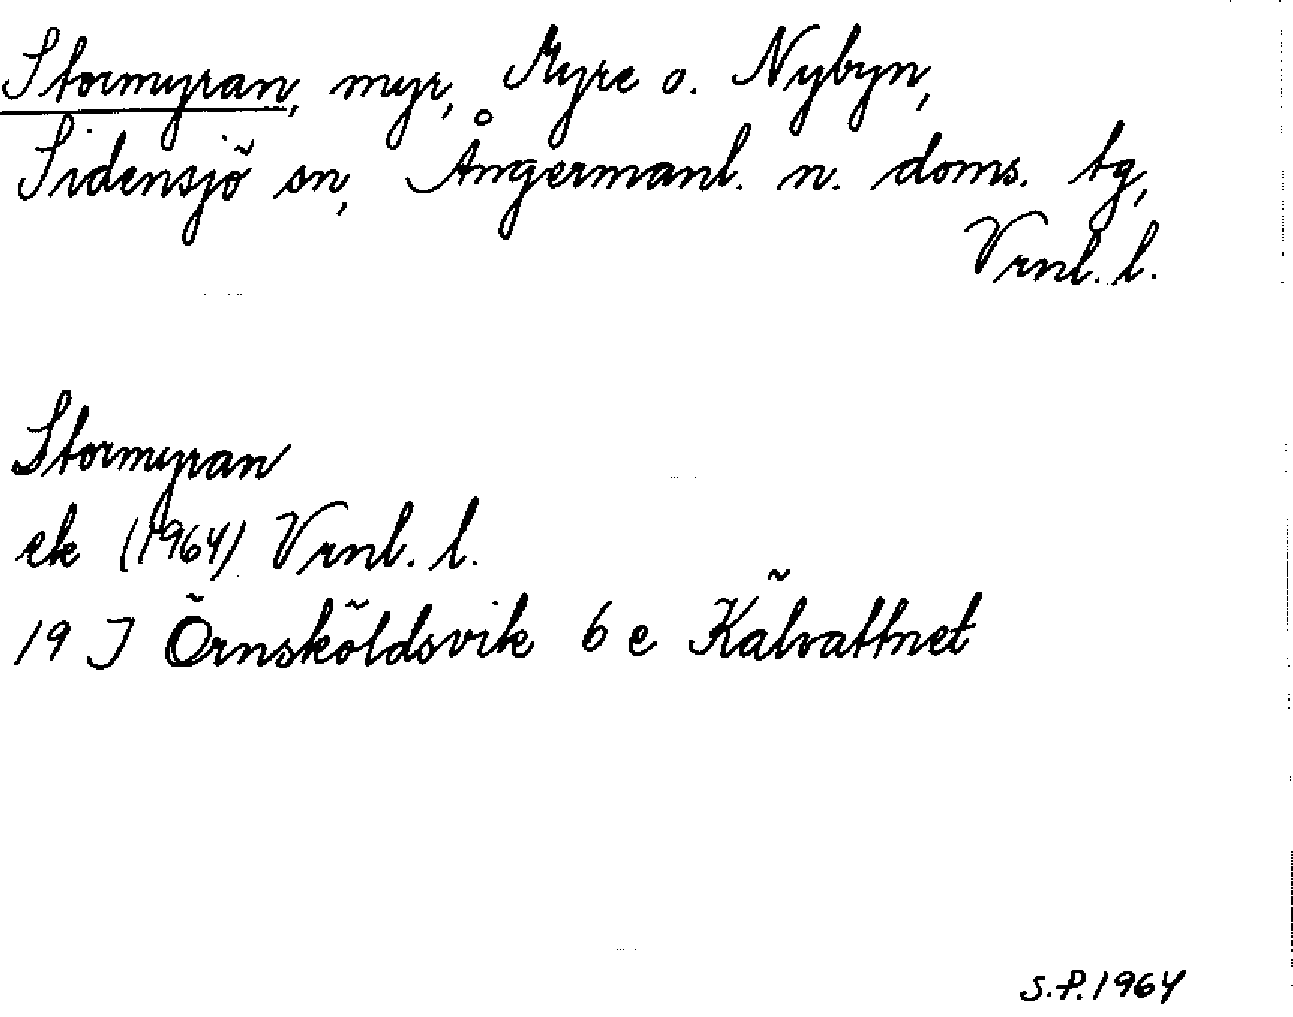 Stormyran, myr, Myre o. Nybyn,
Sidensjö sn, Ångermanl. n. doms. tg,
Vrnl. l.
Stormyran
ek (1964) Vrnl. l.
19 J Örnsköldsvik 6 e Kälvattnet
S.P. 1964